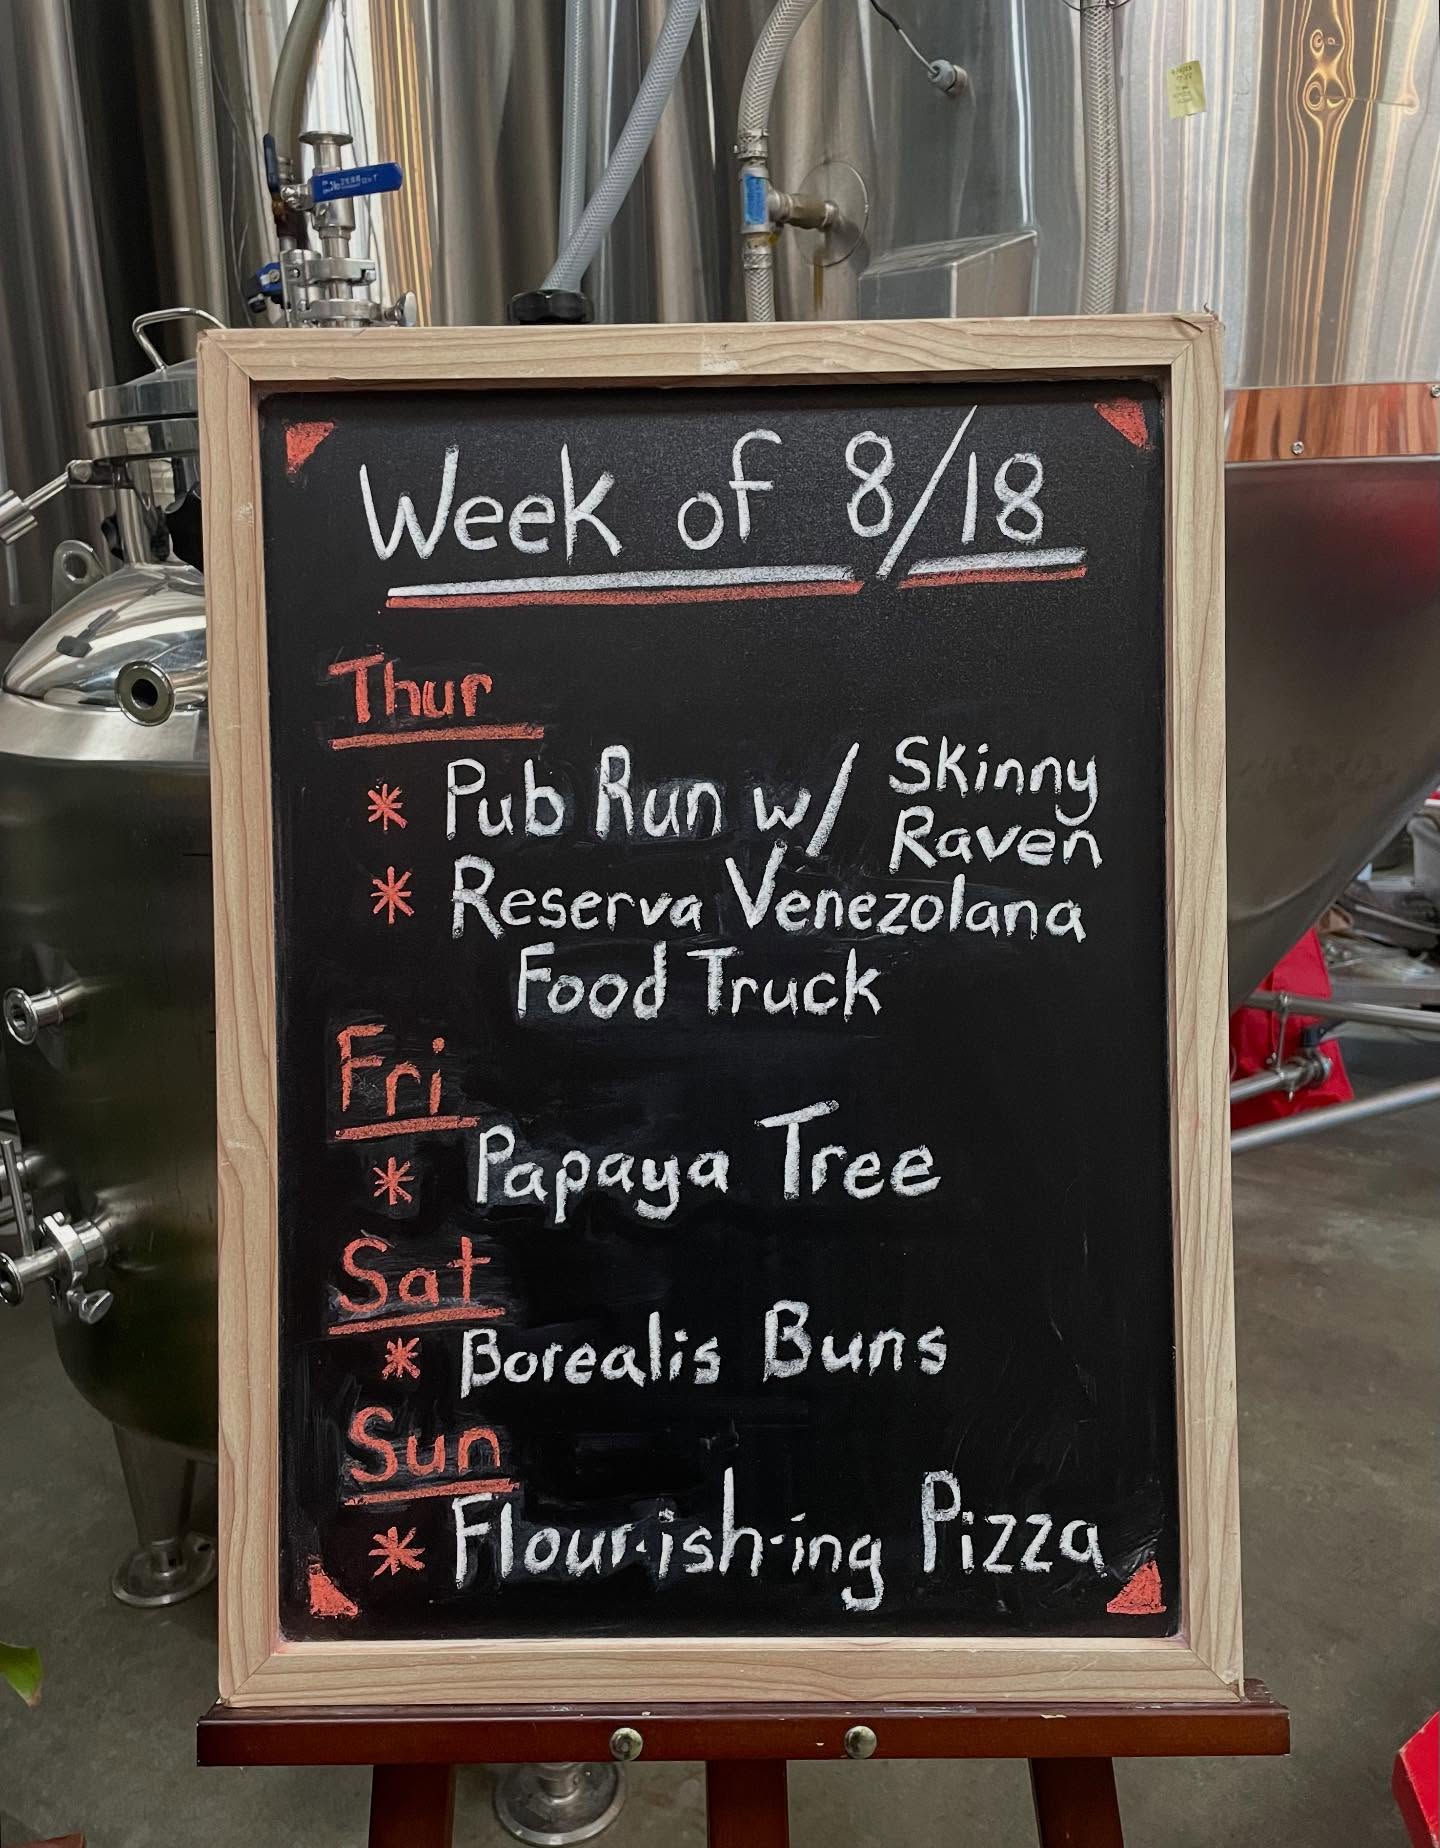 Week of 8/18
Thur
* Pub Run w/ Skinny
Raven
* Reserva Venezolana
Food Truck
Fri
* Papaya Tree
Sat
* Borealis Buns
Sun
* Flour-ish-ing Pizza